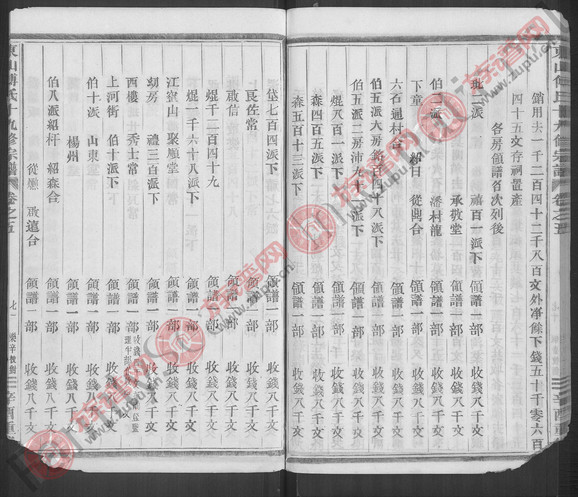 銷用去一千二百四十二千八百文外淨餘下錢五十千零六百
四十五文存祠置產
各房領譜名次列後
琨二派　禧百一派下　領譜一部　收錢八千文
承敬堂　領譜一部　收錢八千文
伯二派　潘村龍　領譜一部　收錢八千文
下童　從闿合　領譜一部　收錢八千文
六石過村合　領譜一部　收錢八千文
伯五派六房　百四派下　領譜一部　收錢八千文
伯五派二房沛九十一派下　領譜一部　收錢八千文
焜八百一派下　領譜一部　收錢八千文
森四百五派下　領譜一部　收錢八千文
森五百十三派下　領譜一部　收錢八千文
岱七百四派下　領譜一部　收錢八千文
良佐常　領譜一部　收錢八千文
啟信　領譜一部　收錢八千文
焜千二百四十九　領譜一部　收錢八千文
焜一千六十八派下　領譜一部　收錢八千文
江寮山　聚順堂　領譜一部　收錢八千文
幼房　禮三百派下　領譜一部
西樓　秀士常　領譜一部　收錢八千文
上河街　伯十派下　領譜一部　收錢八千文
伯十派　山東　領譜一部　收錢八千文
楊州　領譜一部　收錢八千文
伯八派紹杆　紹森合　領譜一部　收錢八千文
從　啟遠合　領譜一部　收錢八千文
東山傅氏十九修宗譜　卷之五